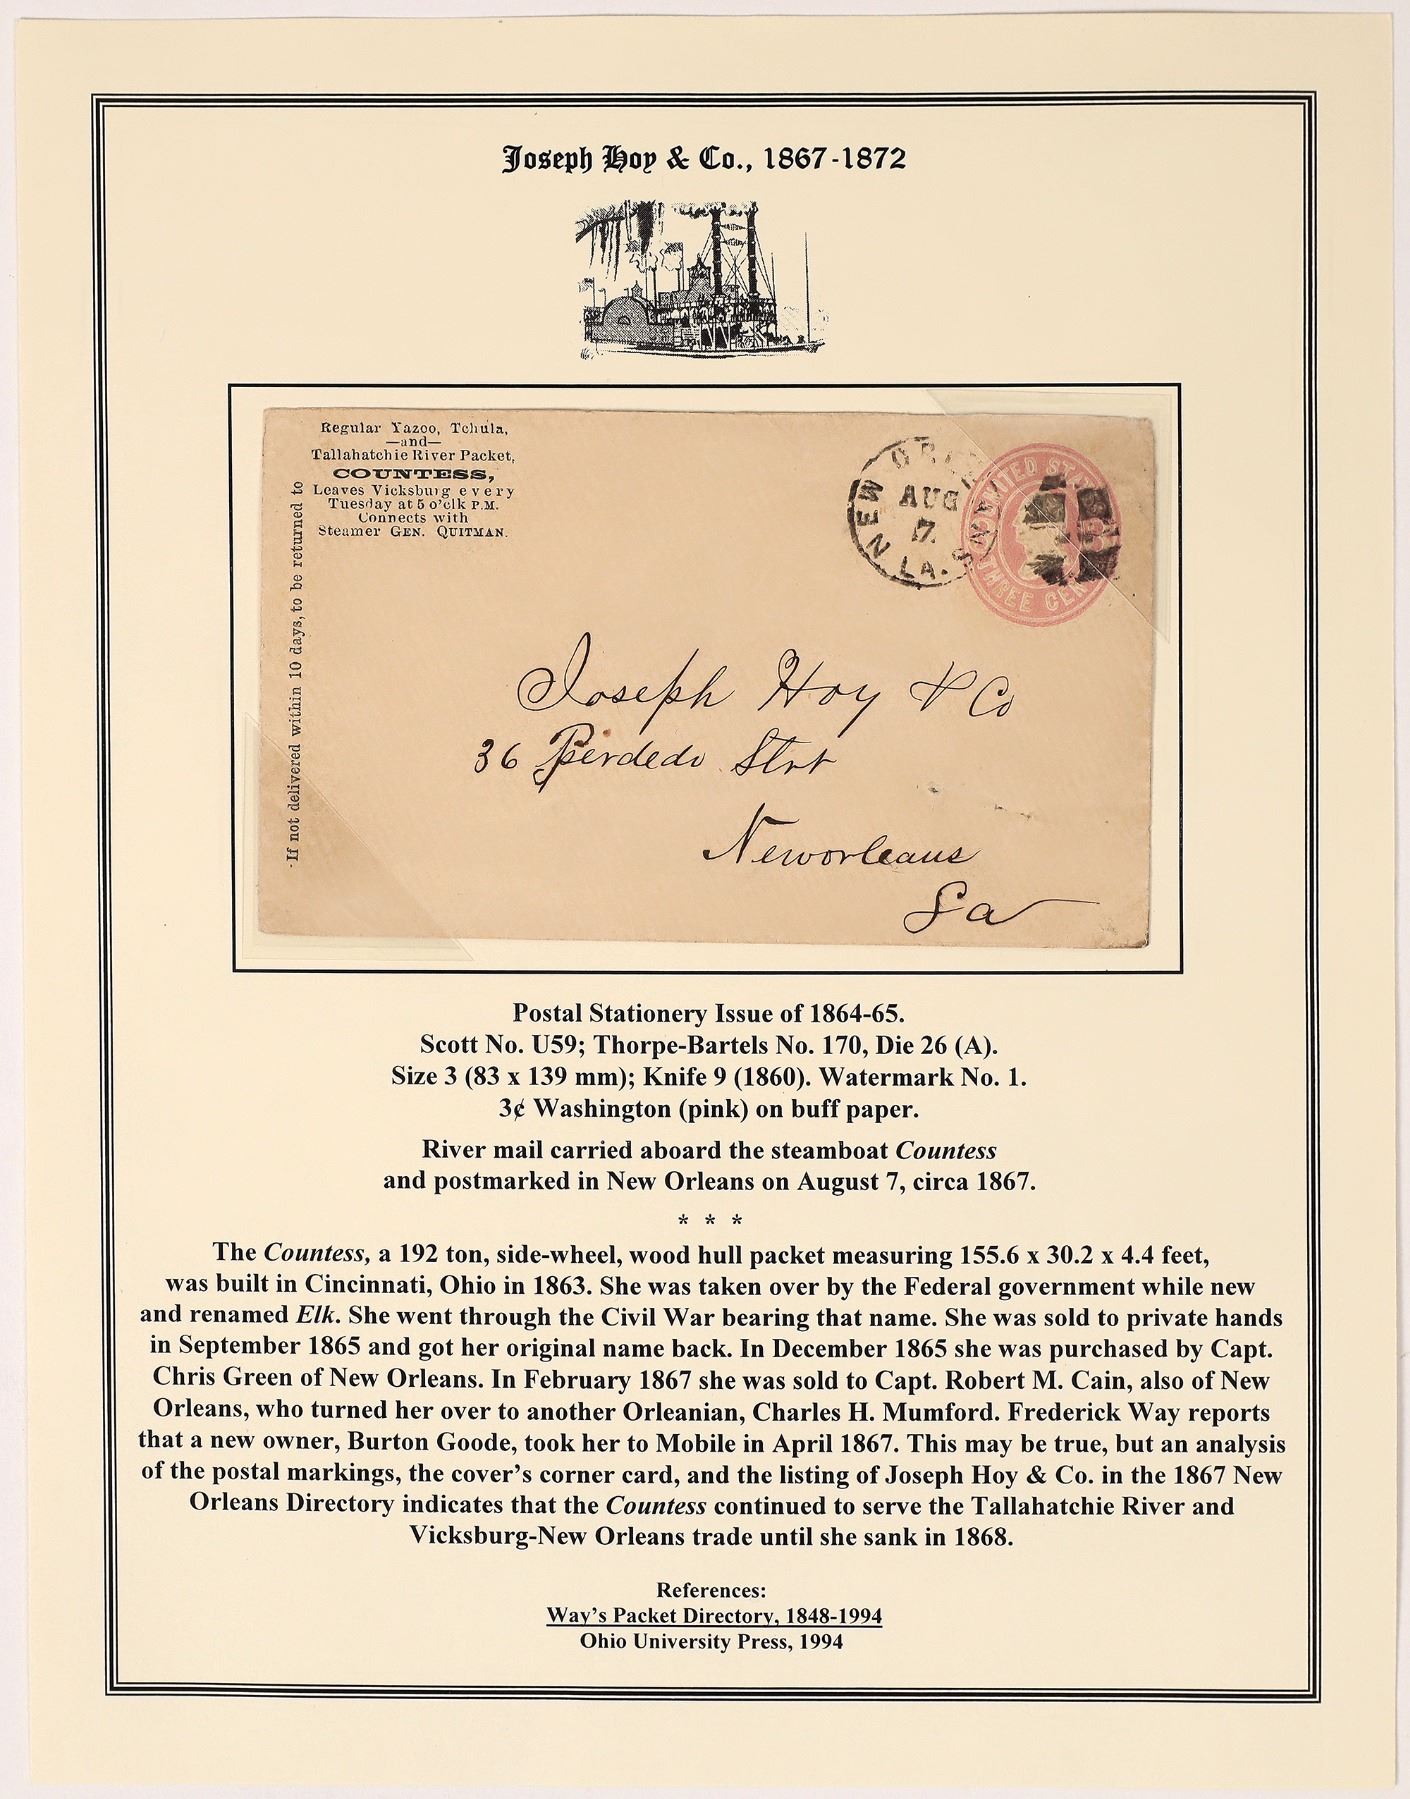 Joseph Hoy & Co., 1867-1872
Regular Yazoo, Tchula,
—and—
Tallahatchie River Packet,
COUNTESS,
Leaves Vicksburg every
Tuesday at 5 o'clk P.M.
Connects with
Steamer GEN. QUITMAN.
If not delivered within 10 days, to be returned to
NEW ORLEANS
AUG
7
LA.
UNITED STATES
THREE CENTS
Joseph Hoy & Co
36 Perdedo Strt
Neworleans
La
Postal Stationery Issue of 1864-65.
Scott No. U59; Thorpe-Bartels No. 170, Die 26 (A).
Size 3 (83 x 139 mm); Knife 9 (1860). Watermark No. 1.
3¢ Washington (pink) on buff paper.
River mail carried aboard the steamboat Countess
and postmarked in New Orleans on August 7, circa 1867.
* * *
The Countess, a 192 ton, side-wheel, wood hull packet measuring 155.6 x 30.2 x 4.4 feet,
was built in Cincinnati, Ohio in 1863. She was taken over by the Federal government while new
and renamed Elk. She went through the Civil War bearing that name. She was sold to private hands
in September 1865 and got her original name back. In December 1865 she was purchased by Capt.
Chris Green of New Orleans. In February 1867 she was sold to Capt. Robert M. Cain, also of New
Orleans, who turned her over to another Orleanian, Charles H. Mumford. Frederick Way reports
that a new owner, Burton Goode, took her to Mobile in April 1867. This may be true, but an analysis
of the postal markings, the cover's corner card, and the listing of Joseph Hoy & Co. in the 1867 New
Orleans Directory indicates that the Countess continued to serve the Tallahatchie River and
Vicksburg-New Orleans trade until she sank in 1868.
References:
Way's Packet Directory, 1848-1994
Ohio University Press, 1994